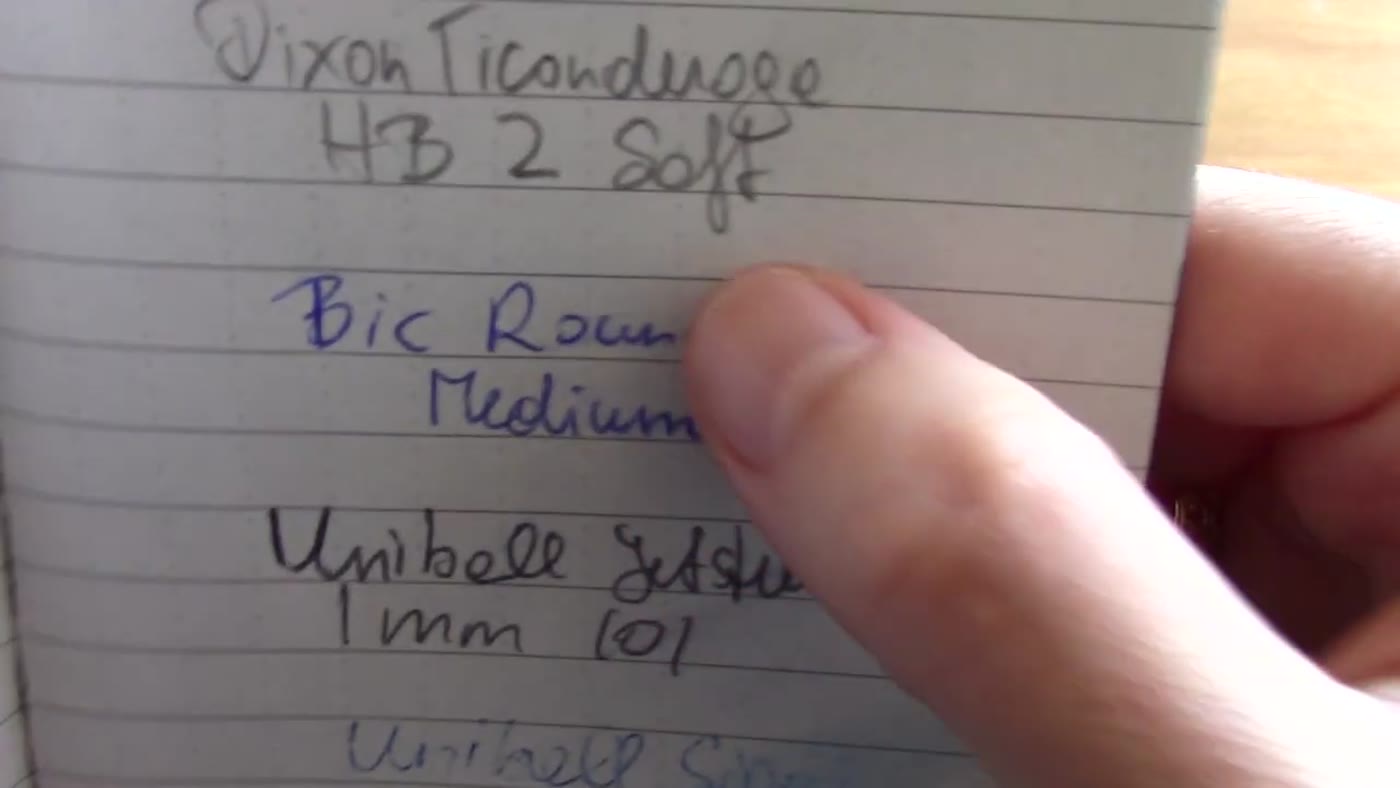 Dixon Ticonderoga
HB 2 Soft
Bic Roun
Medium
Uniball Jetstre
1 mm 101
Uniball